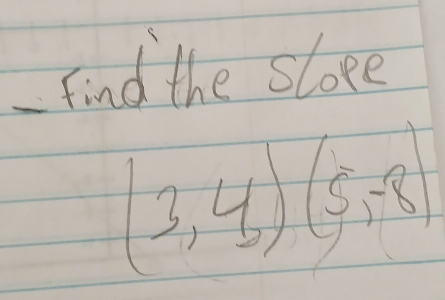 - Find the slope
(3, 4) (5, -8)